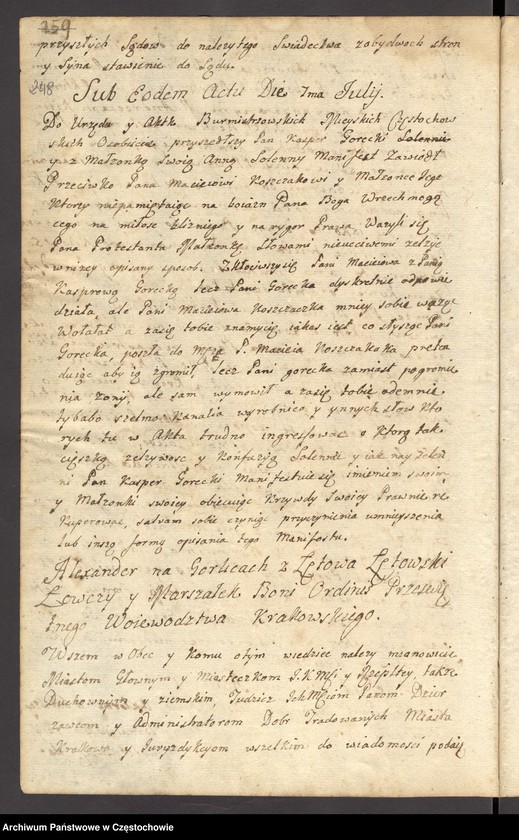 259
przyszłych Sądow do należytego Swiadectwa z obydwoch stron
y Syna stawienie do Sądu.
248
Sub Eodem Actu Die 7ma Julij.
Do Urzędu y Akt Burmistrzowskich Mieyskich Częstochow
skich Osobiscie przyszedłszy Pan Kasper Gorecki Solennie
y z Małzonką Swoią Anną Solenny Manifest Zaniosł
Przeciwko Pana Macieiowi Koszczakowi y Małzonce Jego
Ktorzy niepamiętaiąc na boiazn Pana Boga Wszechmogą
cego na miłosc blizniego y na rygor Prawa Wazyli się
Pana Protestanta Małzonkę Słowami nieuczciwemi zelzyć
w nizey opisany sposob. Zkłociwszy się Pani Macieiowa z Panią
Kasprową Gorecką lecz Pani Gorecka dyskretnie odpowie
działa, ale Pani Macieiowa Koszczaczka mniey sobie waząc
Wołałat a zasię tobie znamycią iakas iest co słysząc Pani
Gorecka, poszła do Męza P. Macieia Koszczaka preten
duiąc aby ią zgromił, lecz Pani gorecka zamiast pogromie
nia zony, ale sam wymowił a zasię tobie odemnie
ty babo szelmo kanalia wyrobnico y ynnych słow Kto
rych tu w Akta trudno ingrossować o Ktorą tak
cięszką zelzywosc y Konfuzyą Solennie y iak nay
ni Pan Kasper Gorecki Manifestuie się imieniem swoim
y Małzonki swoiey obiecuiąc Krzywdy Swoiey Prawnie re
kuperować, salvam sobie czyniąc przyczynienia umnieyszenia
lub inszą formę opisania tego Manifestu.
Alexander na Gorlicach z Łętowa Łętowski
Łowczy y Marszałek Boni Ordinis Przeswie
tnego Woiewodztwa Krakowskiego.
Wszem w Obec y Komu o tym wiedziec nalezy mianowicie
Miastom Głownym y Miasteczkom J.K.Mci y Rzepltey, także
Duchownym y ziemskim, Tudziez Ich Mciom Panom Dzier
zawcom y Administratorom Dobr Tradowanych Miasta
Krakowa y Juryzdykcyom wszelkim do wiadomosci podaię
Archiwum Państwowe w Częstochowie